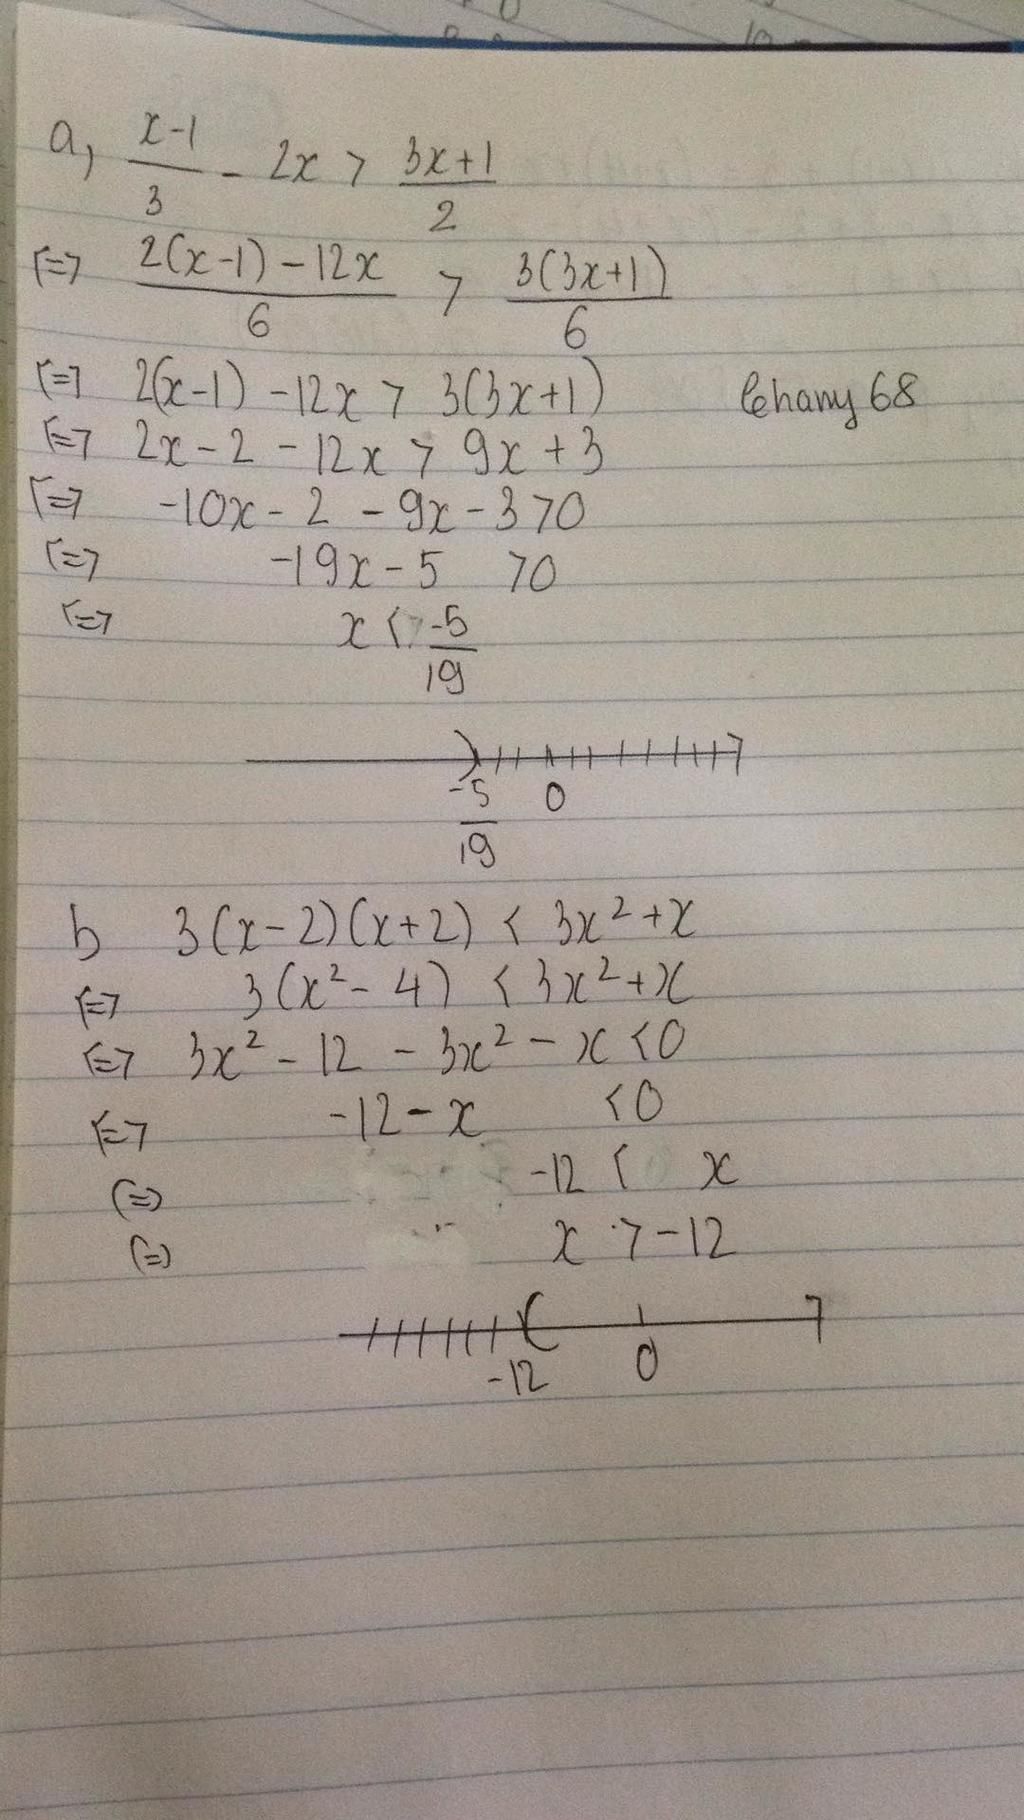 a, (x-1)/3 - 2x > (3x+1)/2
<=> (2(x-1) - 12x)/6 > (3(3x+1))/6
<=> 2(x-1) - 12x > 3(3x+1)
68
<=> 2x - 2 - 12x > 9x + 3
<=> -10x - 2 - 9x - 3 > 0
<=> -19x - 5 > 0
<=> x < -5/19
-5/19 0
b 3(x-2)(x+2) < 3x² + x
<=> 3(x² - 4) < 3x² + x
<=> 3x² - 12 - 3x² - x < 0
<=> -12 - x < 0
<=> -12 < x
<=> x > -12
-12 0